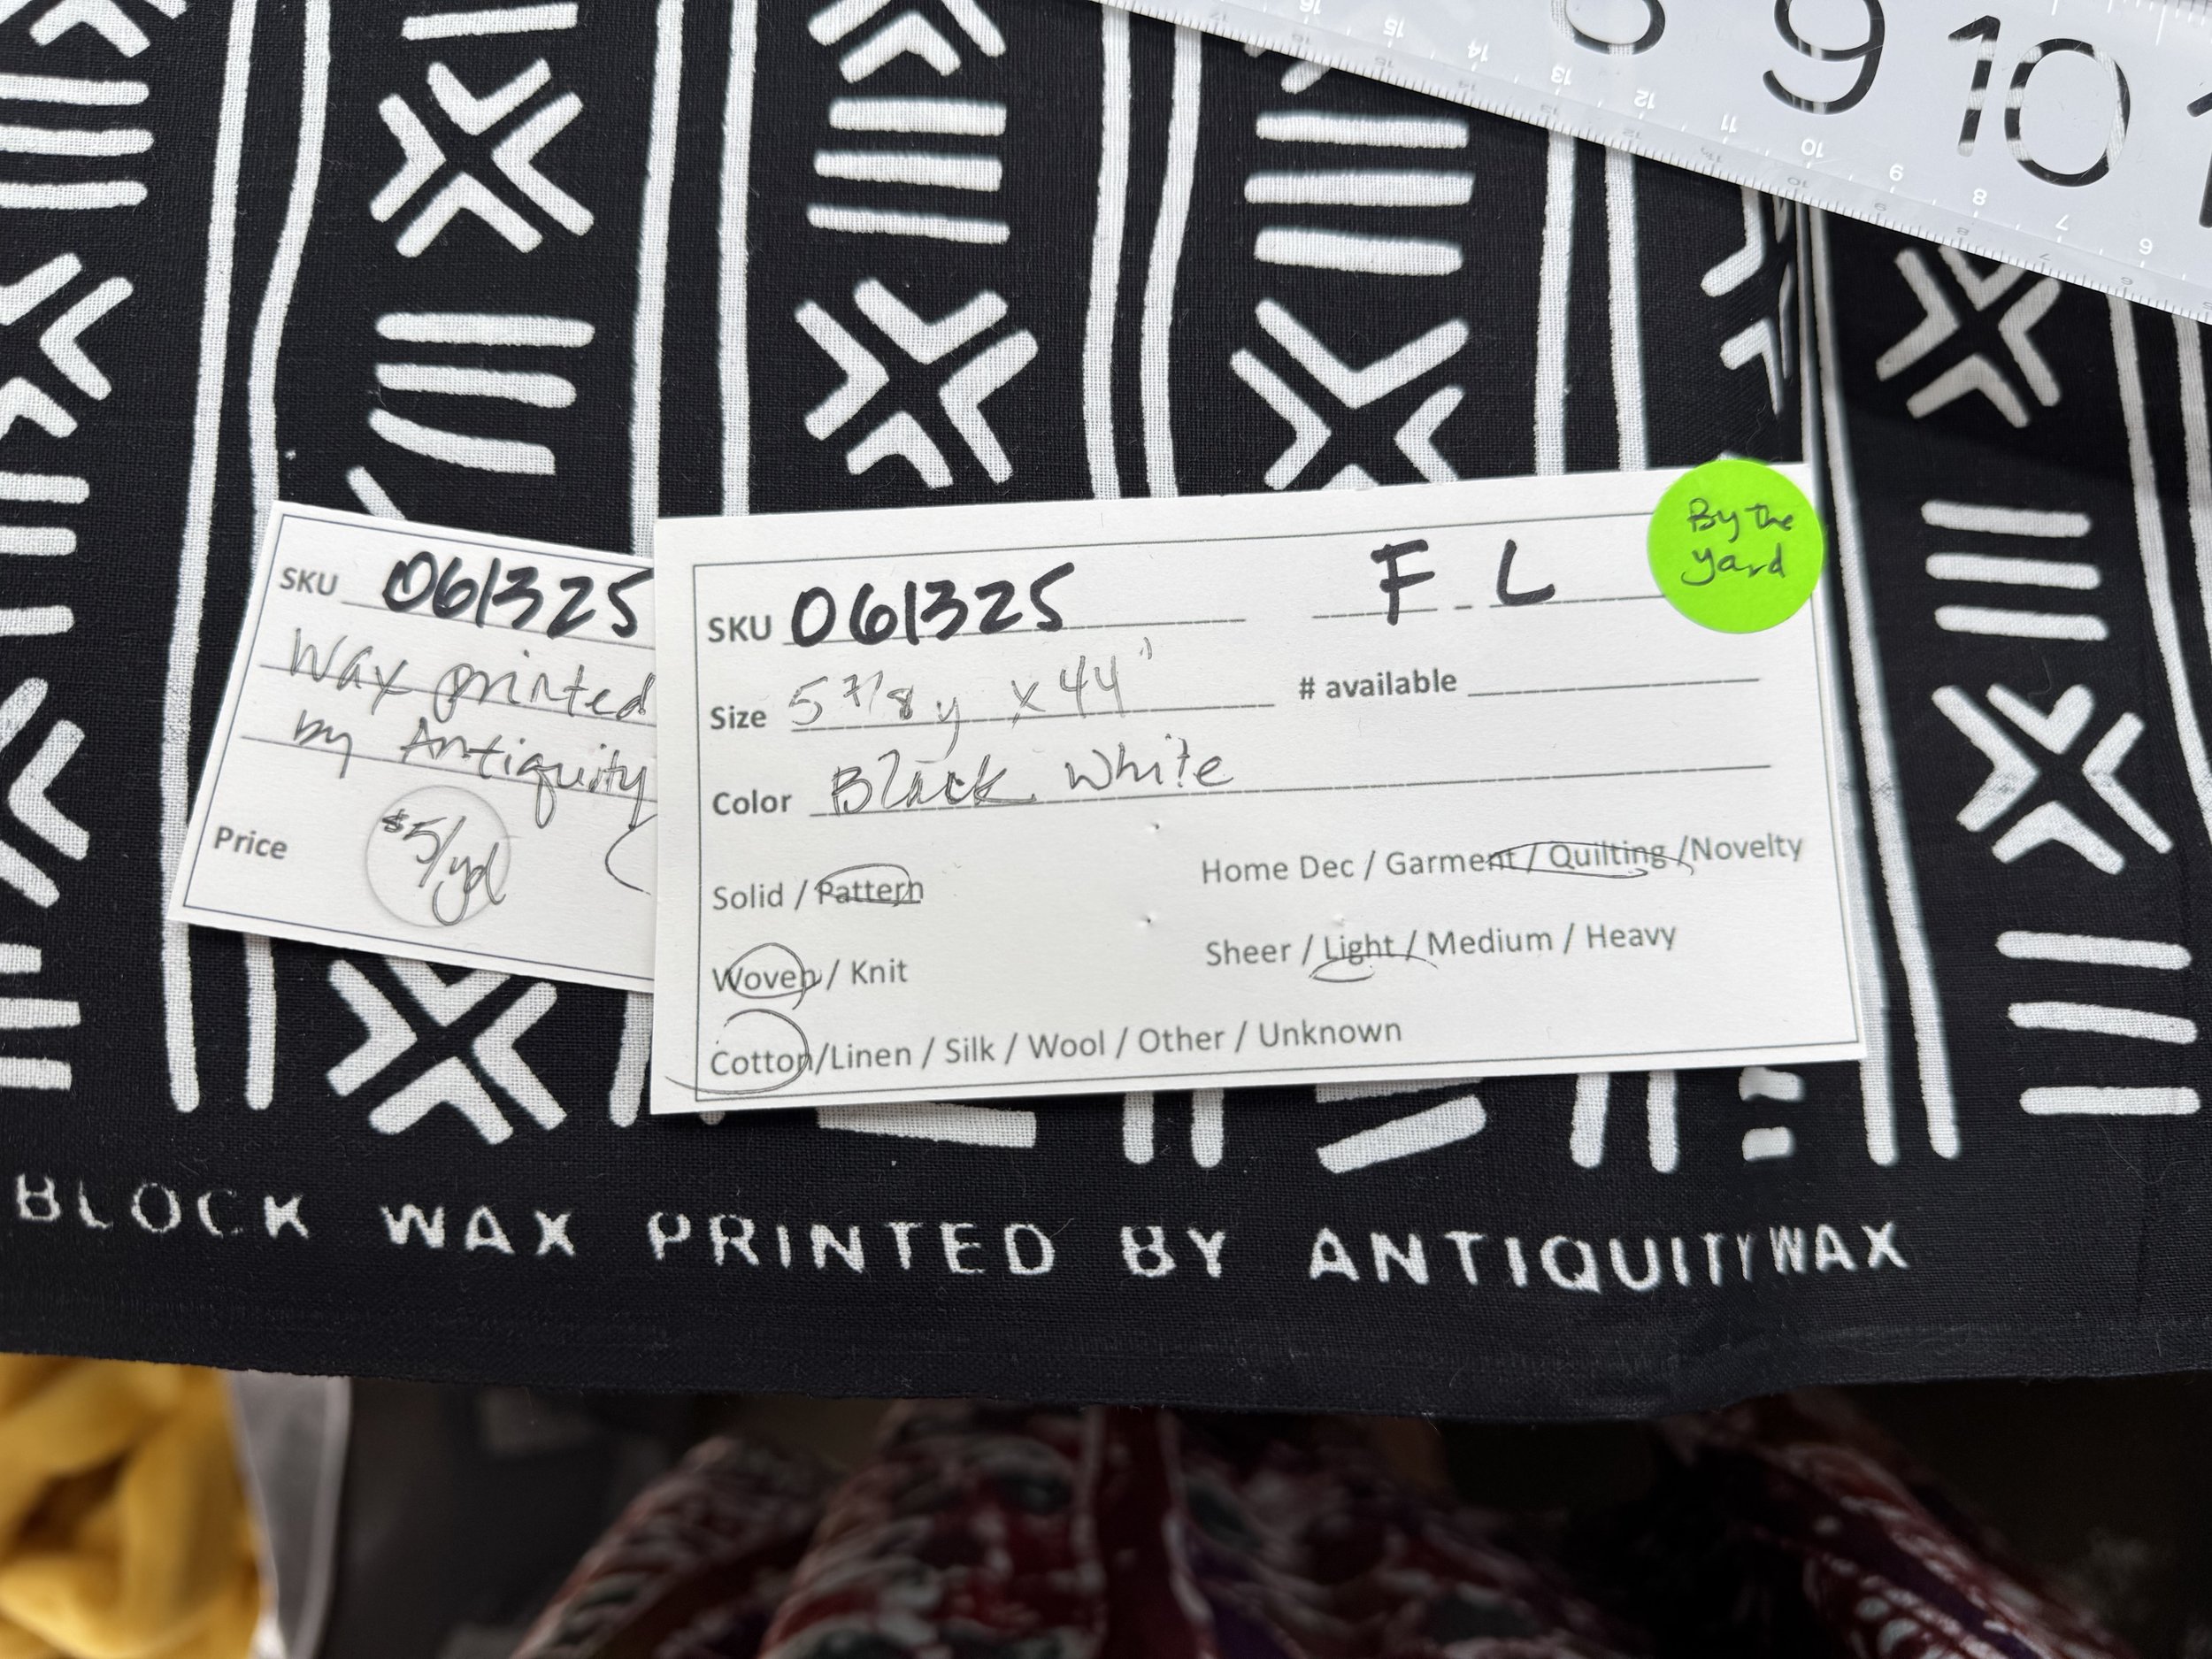 16 15 14 13 12 11 10 9 8 7 6
8 9 10
SKU 061325
Wax printed
by Antiquity
Price $5/yd
By the
yard
SKU 061325 F - L
Size 5 7/8 y x 44" # available
Color Black White
Solid / Pattern Home Dec / Garment / Quilting /Novelty
Woven / Knit Sheer / Light / Medium / Heavy
Cotton/Linen / Silk / Wool / Other / Unknown
BLOCK WAX PRINTED BY ANTIQUITY WAX